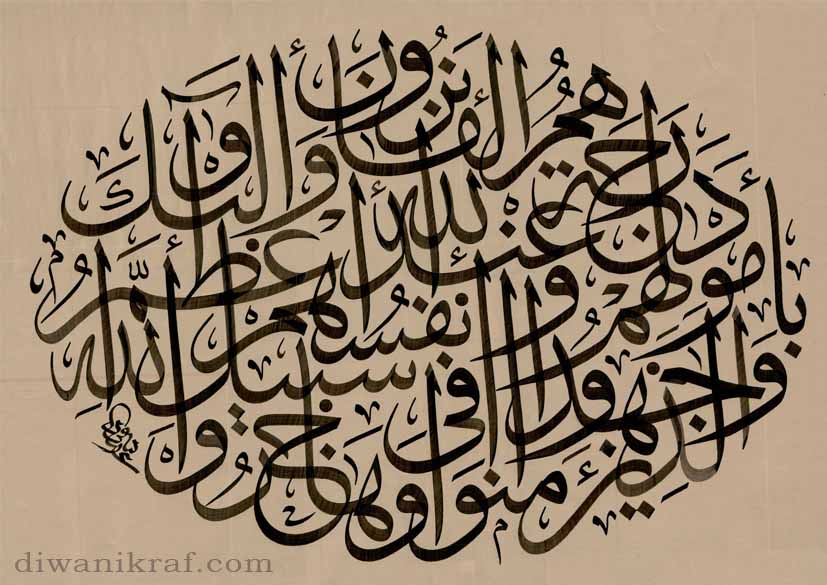 الذين ءامنوا وهاجروا
وجهدوا فى سبيل الله
بأمولهم وأنفسهم أعظم
درجة عند الله وأولئك
هم الفائزون
diwanikraf.com